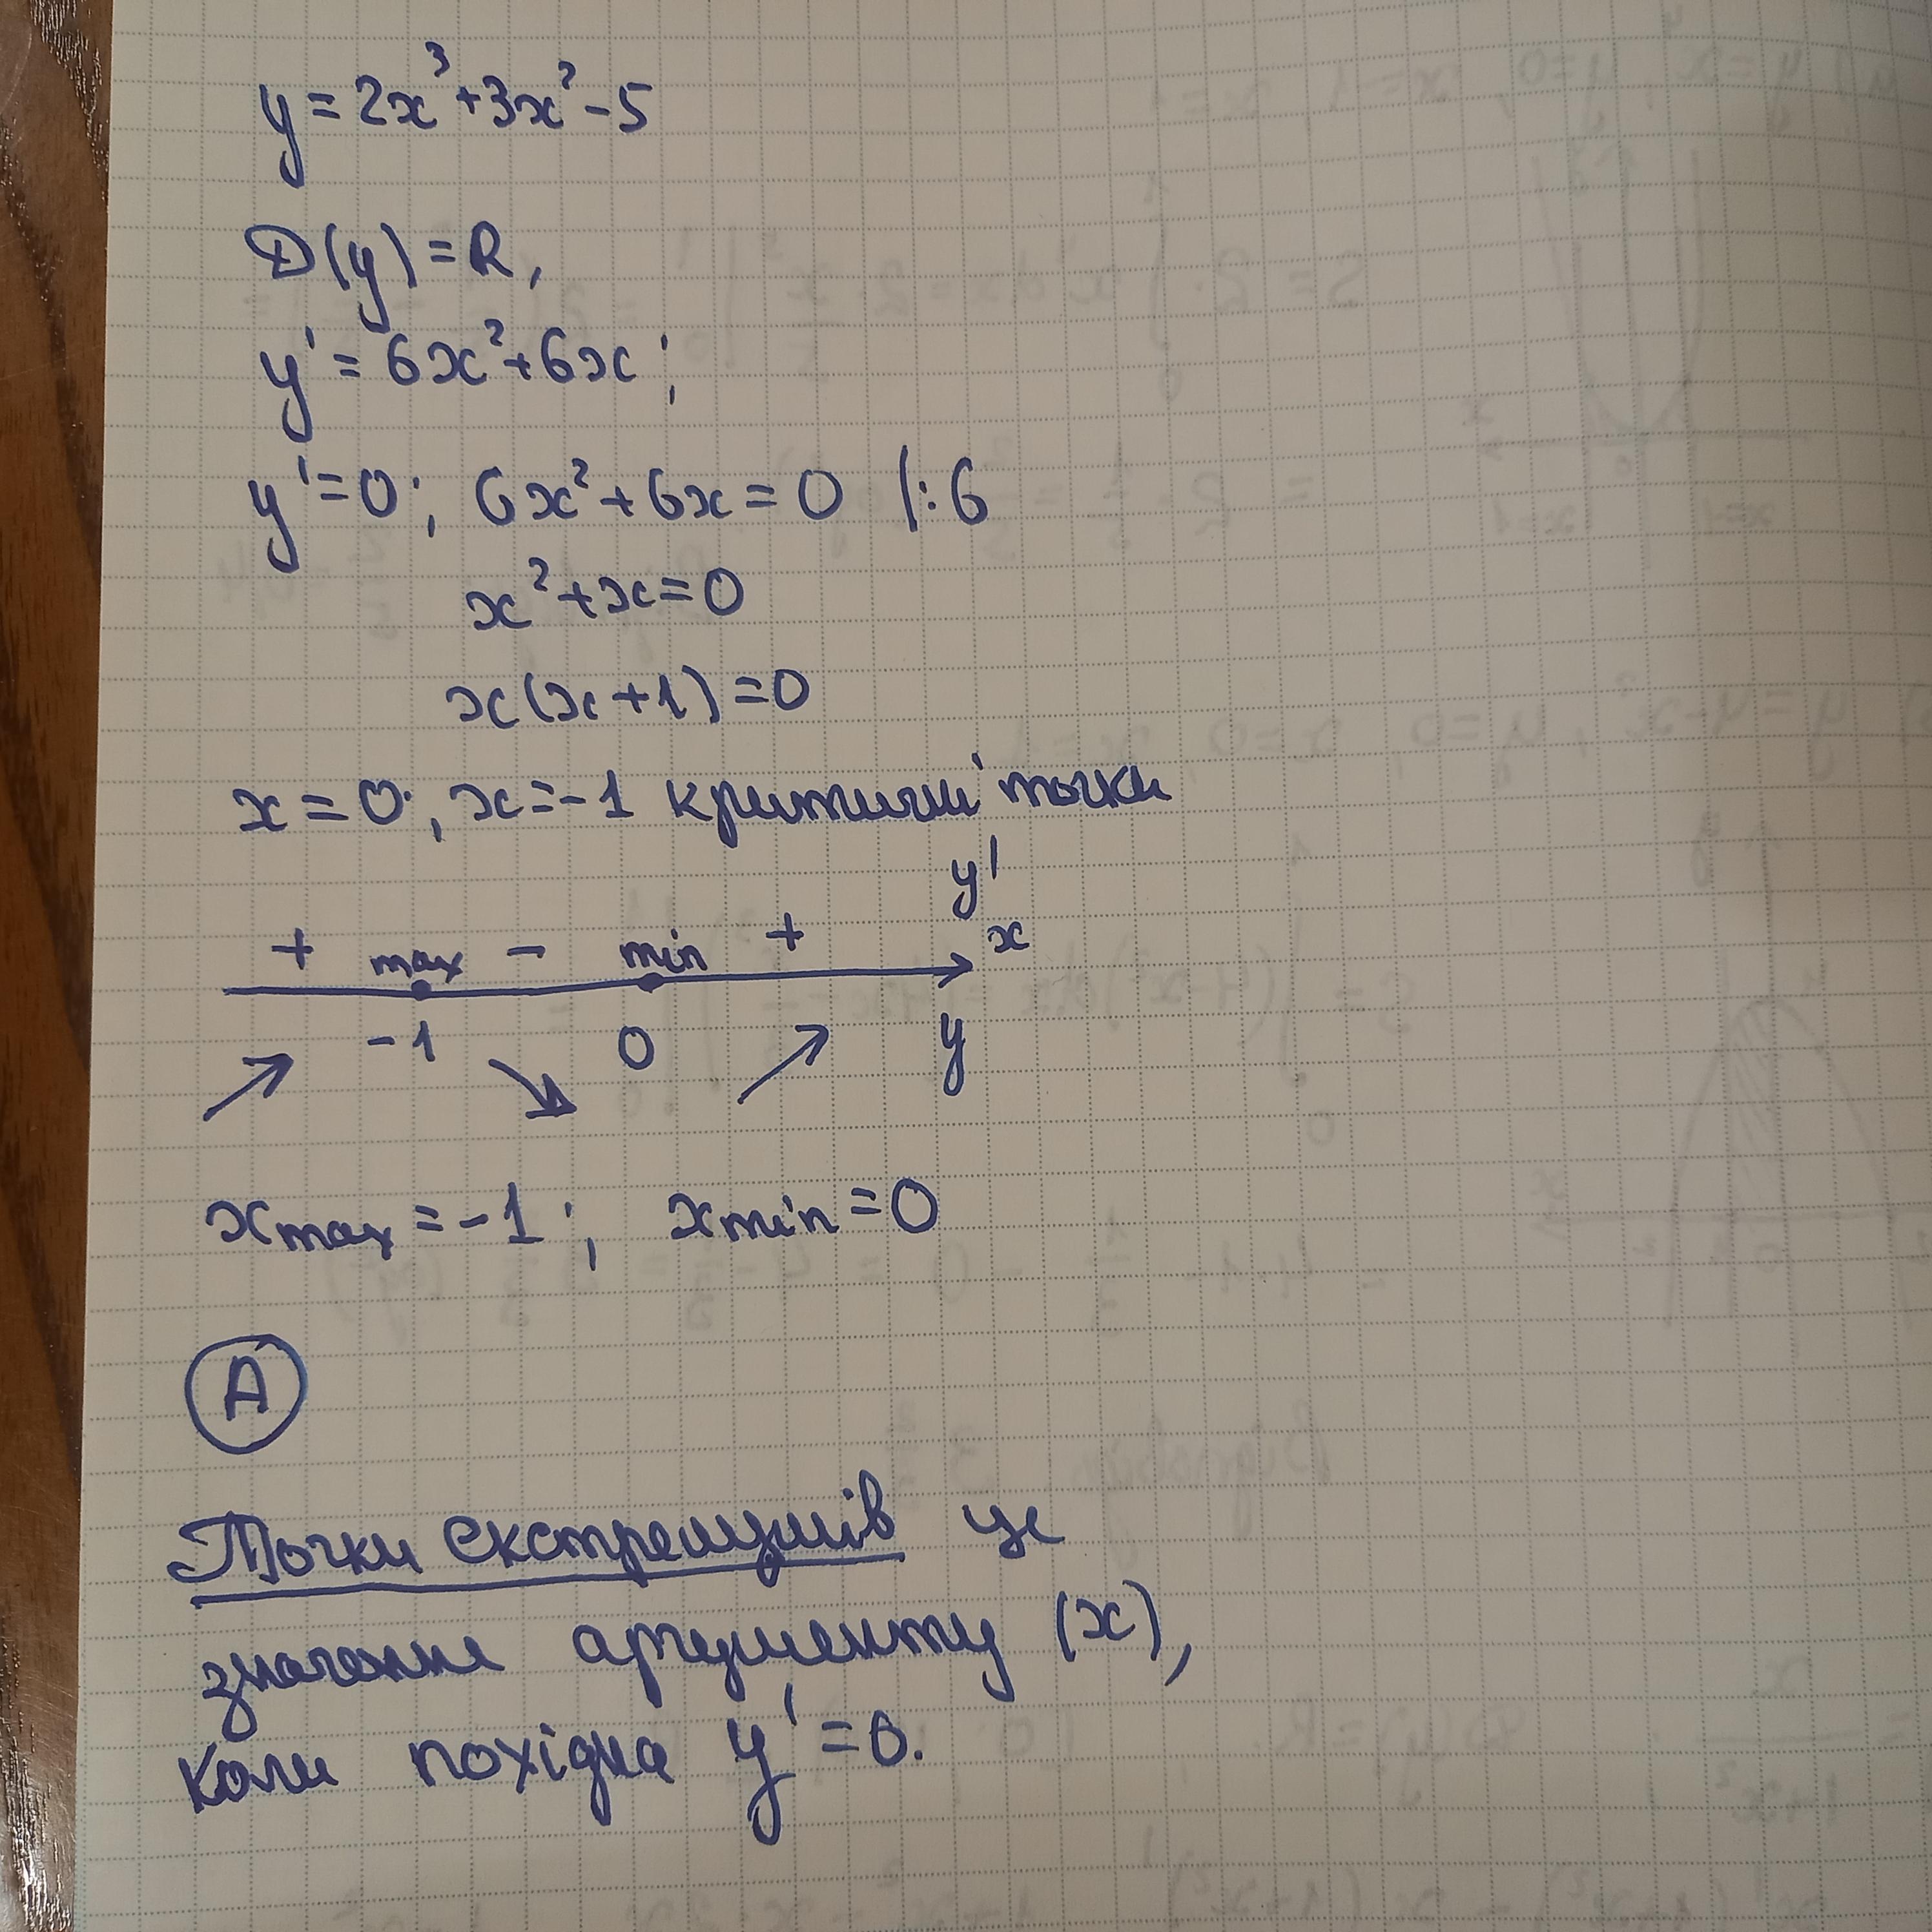 y = 2x³ + 3x² - 5
D(y) = R,
y' = 6x² + 6x ;
y' = 0 ; 6x² + 6x = 0 |:6
x² + x = 0
x(x + 1) = 0
x = 0 ; x = -1 критичні точки
y'
+ max - min + x
-1 0 y
x max = -1 ; x min = 0
A
Точки екстремумів це
значення аргументу (x),
коли похідна y' = 0.